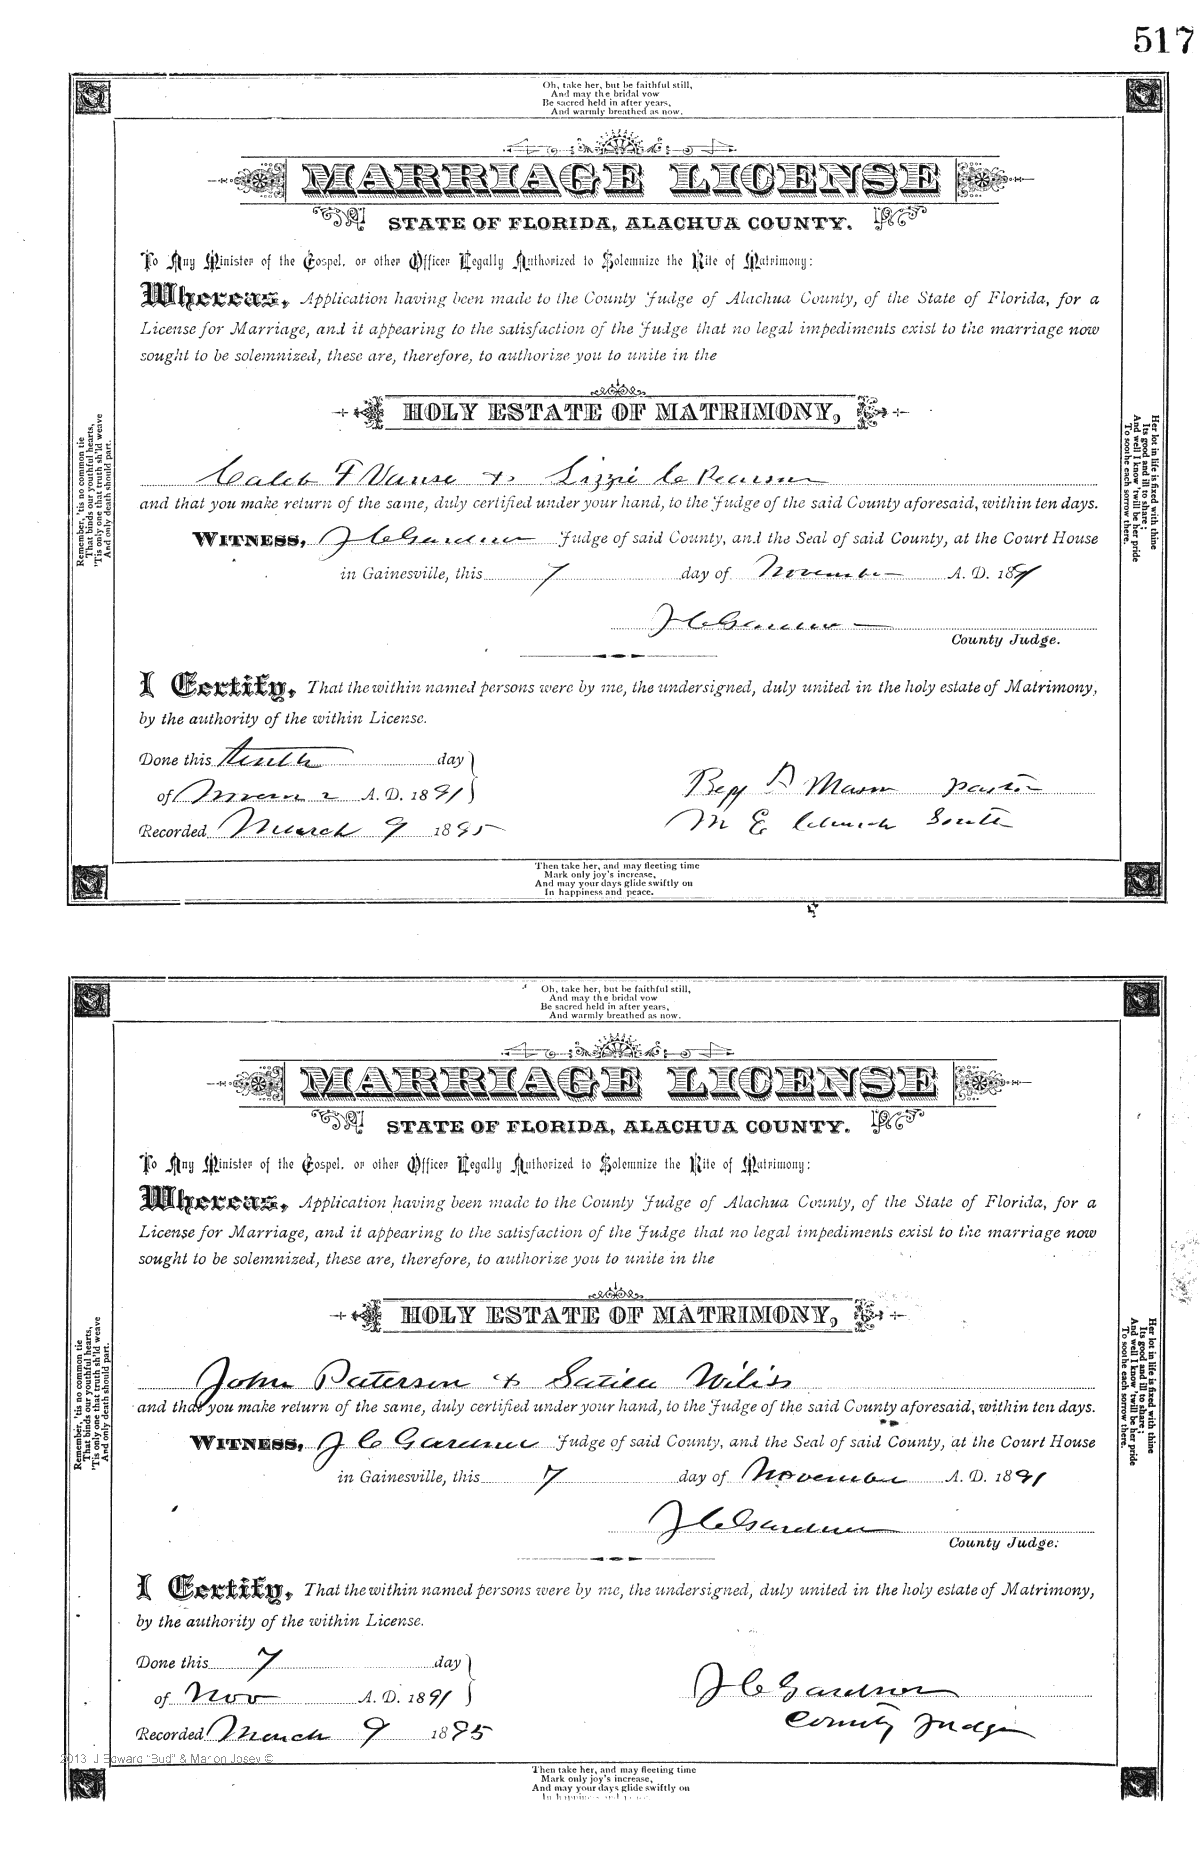 517
Oh, take her, but be faithful still,
And may the bridal vow
Be sacred held in after years,
And warmly breathed as now.
MARRIAGE LICENSE
STATE OF FLORIDA, ALACHUA COUNTY.
To Any Minister of the Gospel, or other Officer Legally Authorized to Solemnize the Rite of Matrimony:
Whereas, Application having been made to the County Judge of Alachua County, of the State of Florida, for a
License for Marriage, and it appearing to the satisfaction of the Judge that no legal impediments exist to the marriage now
sought to be solemnized, these are, therefore, to authorize you to unite in the
HOLY ESTATE OF MATRIMONY,
Caleb F Vause & Lizzie C Pearson
and that you make return of the same, duly certified under your hand, to the Judge of the said County aforesaid, within ten days.
WITNESS, J C Gardner Judge of said County, and the Seal of said County, at the Court House
in Gainesville, this 7 day of November A. D. 1891
J C Gardner
County Judge.
I Certify, That the within named persons were by me, the undersigned, duly united in the holy estate of Matrimony,
by the authority of the within License.
Done this tenth day
of A. D. 1891
Recorded March 9 1895
Mason Pastor
M E Church South
Remember, 'tis no common tie
That binds our youthful hearts,
'Tis only one that truth sh'ld weave
And only death should part.
Her lot in life is fixed with thine
Its good and ill to share;
And well I know 'twill be her pride
To soothe each sorrow there.
Then take her, and may fleeting time
Mark only joy's increase,
And may your days glide swiftly on
In happiness and peace.
Oh, take her, but be faithful still,
And may the bridal vow
Be sacred held in after years,
And warmly breathed as now.
MARRIAGE LICENSE
STATE OF FLORIDA, ALACHUA COUNTY.
To Any Minister of the Gospel, or other Officer Legally Authorized to Solemnize the Rite of Matrimony:
Whereas, Application having been made to the County Judge of Alachua County, of the State of Florida, for a
License for Marriage, and it appearing to the satisfaction of the Judge that no legal impediments exist to the marriage now
sought to be solemnized, these are, therefore, to authorize you to unite in the
HOLY ESTATE OF MATRIMONY,
John Paterson & Wiliss
and that you make return of the same, duly certified under your hand, to the Judge of the said County aforesaid, within ten days.
WITNESS, J C Gardner Judge of said County, and the Seal of said County, at the Court House
in Gainesville, this 7 day of November A. D. 1891
J C Gardner
County Judge.
I Certify, That the within named persons were by me, the undersigned, duly united in the holy estate of Matrimony,
by the authority of the within License.
Done this 7 day
of Nov A. D. 1891
Recorded March 9 1895
J C Gardner
County Judge
Remember, 'tis no common tie
That binds our youthful hearts,
'Tis only one that truth sh'ld weave
And only death should part.
Her lot in life is fixed with thine
Its good and ill to share;
And well I know 'twill be her pride
To soothe each sorrow there.
2013 J Edward "Bud" & Marion Josey ©
Then take her, and may fleeting time
Mark only joy's increase,
And may your days glide swiftly on
In happiness and peace.